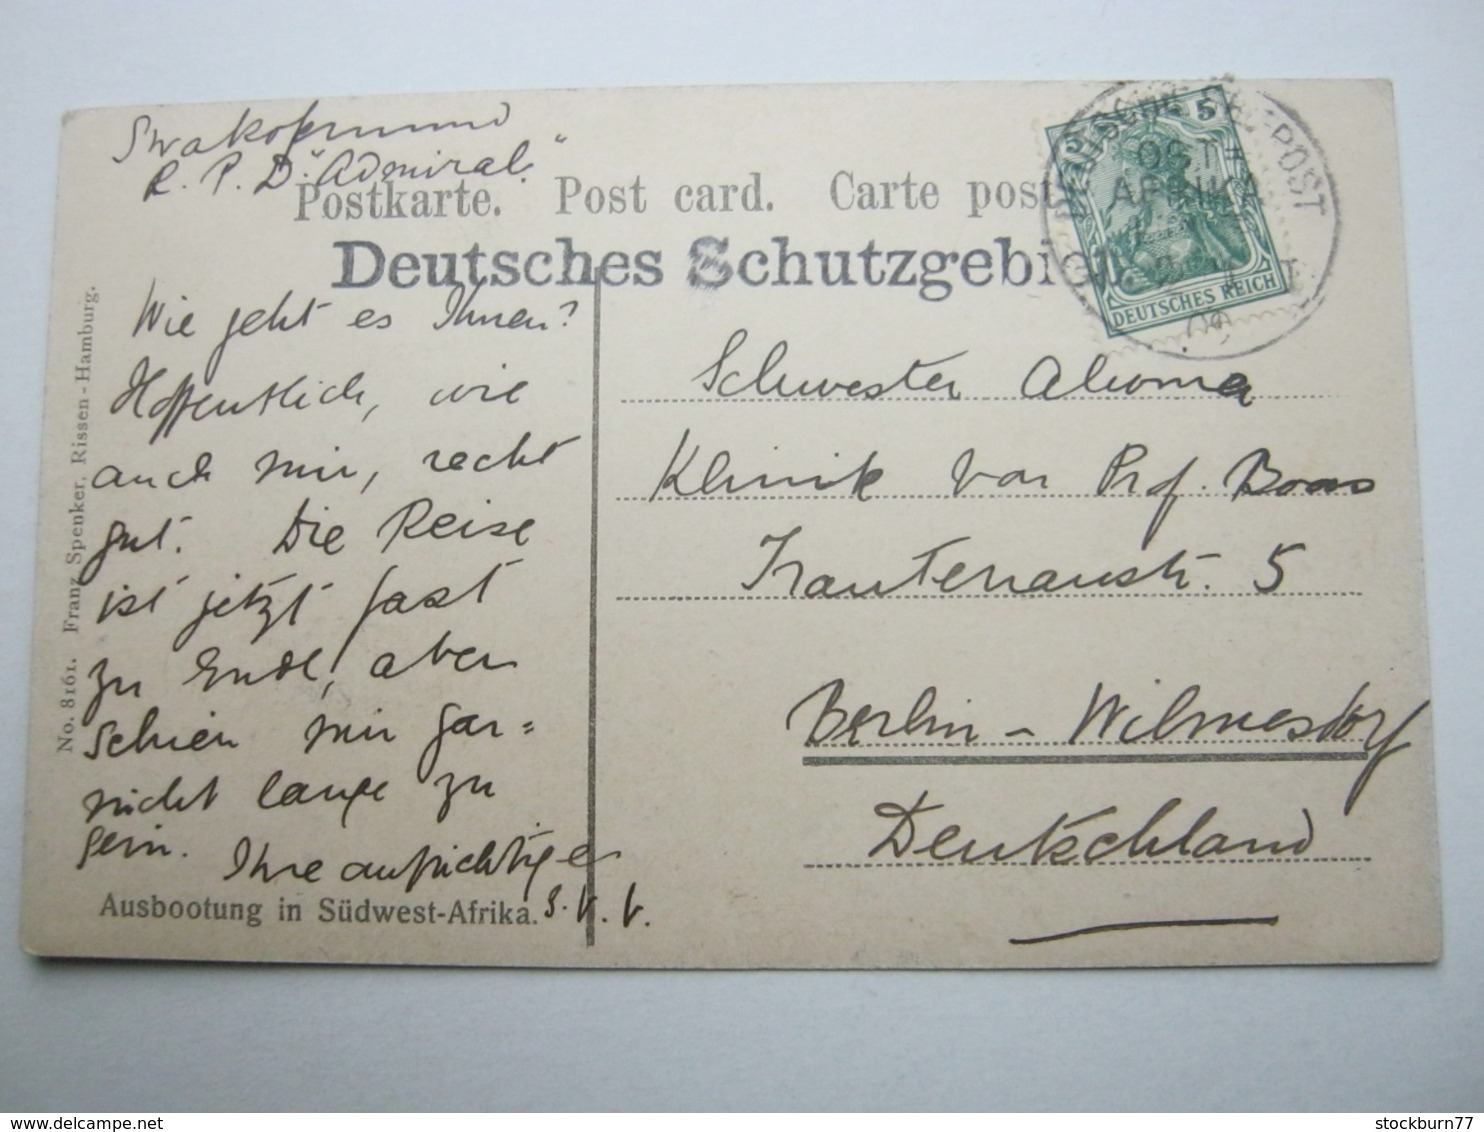 Swakopmund
R. P. D. "Admiral"
Postkarte. Post card. Carte post
Deutsches Schutzgebi
5
DEUTSCHES REICH
DEUTSCHE SEEPOST
OST=
AFRIKA
09
Wie geht es Ihnen?
Hoffentlich, wie
auch mir, recht
gut. Die Reise
ist jetzt fast
zu Ende, aber
schien mir gar=
nicht lange zu
sein. Ihre aufrichtige
Schwester
Klinik von Prof. Boas
Trautenaustr. 5
Berlin - Wilmersdorf
Deutschland
Ausbootung in Südwest-Afrika.
No. 8161. Franz Spenker, Rissen-Hamburg.
delcampe.net
stockburn77